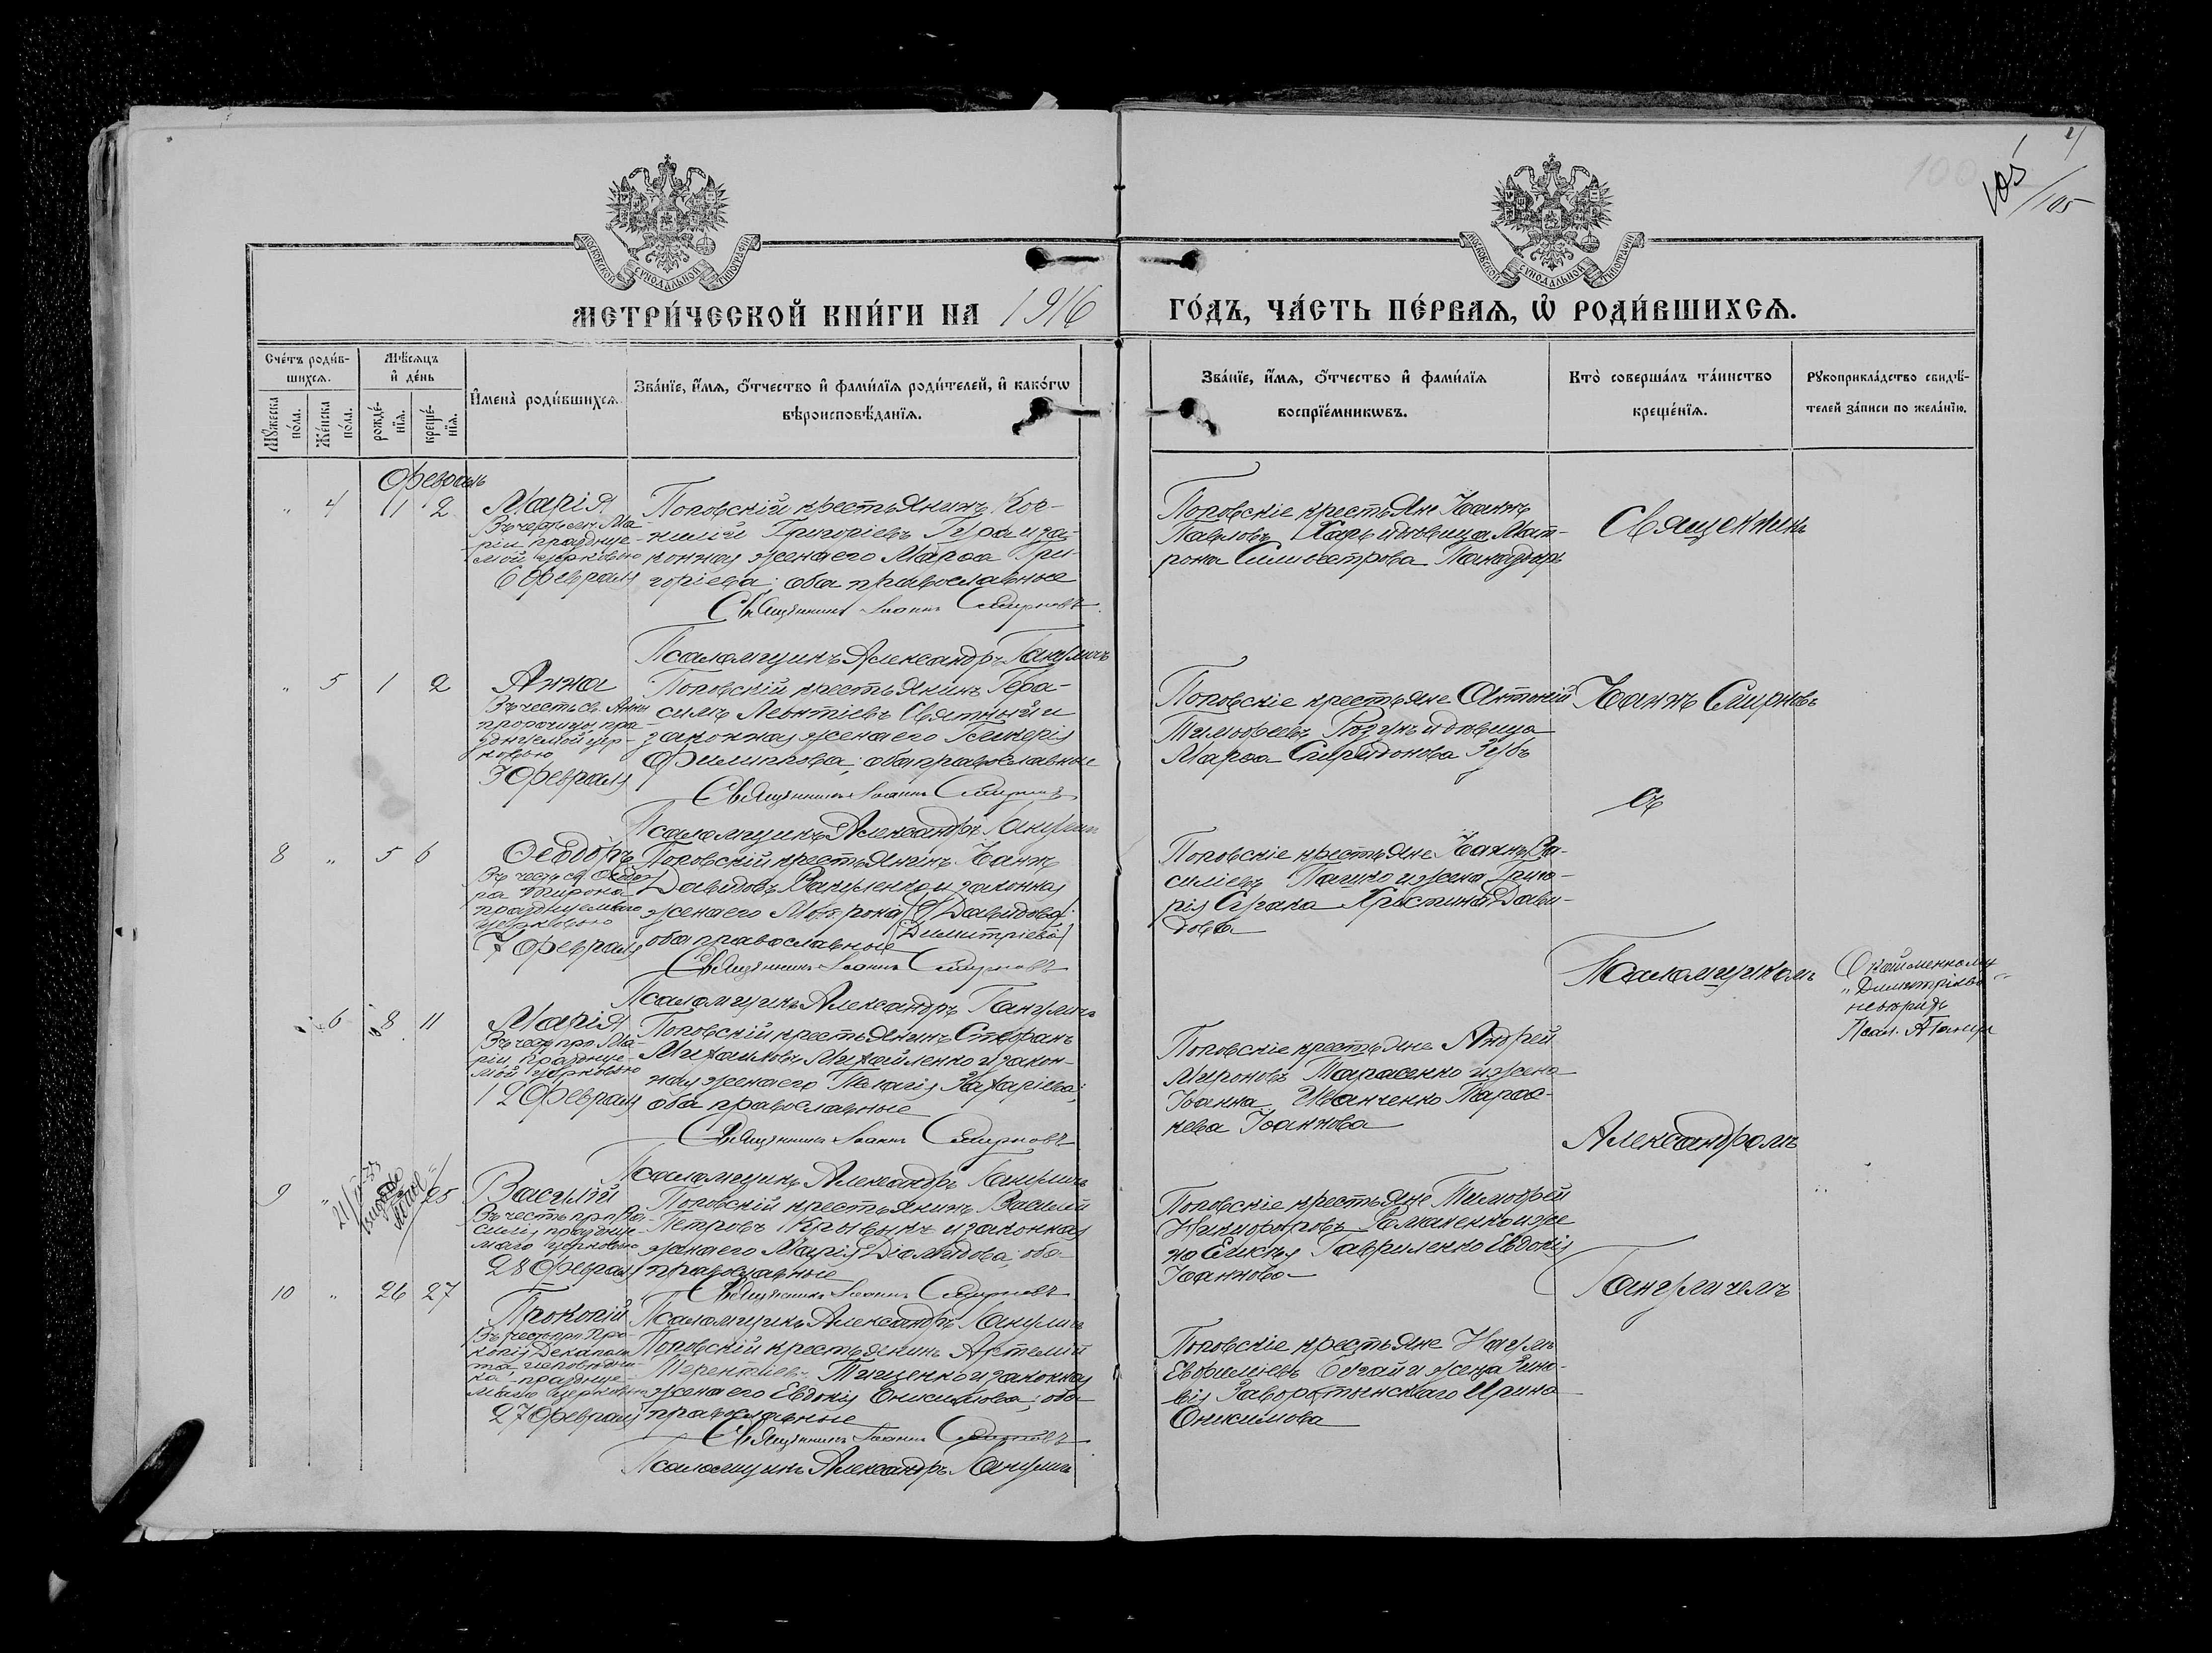 105
105
МОСКОВСКОЙ СУНОДАЛЬНОЙ ТИПОГРАФІИ
МОСКОВСКОЙ СУНОДАЛЬНОЙ ТИПОГРАФІИ
МЕТРИ́ЧЕСКОЙ КНИ́ГИ НА 1916 ГО́ДЪ, ЧА́СТЬ ПЕ́РВАѦ, Ѡ҆ РОДИ́ВШИХСѦ.
Сче́тъ роди́в-
шихсѧ.
Мꙋ́жеска по́ла.
Же́нска по́ла.
Мѣ́сѧцъ
и҆ де́нь
рожде́-
нїѧ.
креще́-
нїѧ.
И҆мена̀ роди́вшихсѧ.
Зва́нїе, и҆́мѧ, ѻ҆́тчество и҆ фами́лїѧ роди́телей, и҆ како́гѡ
вѣроисповѣ́данїѧ.
Зва́нїе, и҆́мѧ, ѻ҆́тчество и҆ фами́лїѧ
воспрїе́мникѡвъ.
Кто̀ соверша́лъ та́инство
креще́нїѧ.
Рꙋкоприкла́дство свидѣ́-
телей за́писи по жела́нїю.
Февраль
" 4 1 2 Марія
ріи праздную-
мой церковью
6 Февраля
Поповскій крестьянинъ Кор-
нилій Григоріевъ и за-
конная жена его Марѳа Гри-
горіева; оба православные
Священникъ Іоаннъ Смирновъ
Псаломщикъ Александръ Ганулич
Поповскіе крестьяне Іоаннъ
Павловъ и вдовица Мат-
рона Силвестрова
Священникъ
" 5 1 2 Анна
Въ честь св. Анны
пророчицы пра-
зднуемой цер-
ковью
3 Февраля
Поповскій крестьянинъ Гера-
симъ Леонтіевъ и
законная жена его Гликерія
Филиппова; оба православные
Священникъ Іоаннъ Смирновъ
Псаломщикъ Александръ Ганулич
Поповскіе крестьяне Антоній
Тимоѳеевъ и вдовица
Марѳа Спиридонова Зубъ
Іоаннъ Смирновъ
съ
8 " 5 6 Ѳеодоръ
Въ честь св. Ѳеодо-
ра Тирона
празднуемаго
церковью
7 Февраля
Поповскій крестьянинъ Іоаннъ
Давидовъ и законная
жена его Матрона (Давидова)
Димитріева
оба православные
Священникъ Іоаннъ Смирновъ
Псаломщикъ Александръ Ганулич
Поповскіе крестьяне Іоаннъ Ва-
силіевъ Пашко и жена Григо-
рія Христина Дави-
дова
Псаломщикомъ
"Димитріева"
вѣрить
Псал. А Ганул
" 6 8 11 Марія
Въ честь прп Ма-
ріи празднуе-
мой церковью
12 Февраля
Поповскій крестьянинъ Стефанъ
Михаиловъ Михайленко и закон-
ная жена его Пелагія Захаріева;
оба православные
Священникъ Іоаннъ Смирновъ
Псаломщикъ Александръ Ганулич
Поповскіе крестьяне Андрей
Мироновъ Тарасенко и жена
Іоанна Иванченко Парас-
кева Іоаннова
Александромъ
9 " 25 Василій
Въ честь прп Ва-
силія празднуе-
маго церковью
28 Февраля
Поповскій крестьянинъ Василій
Петровъ и законная
жена его Марія Діомидова; оба
православные
Священникъ Іоаннъ Смирновъ
Псаломщикъ Александръ Ганулич
Поповскіе крестьяне Тимофей
Никифоровъ Романенко и же
на Гавриленко Евдокія
Іоаннова
Гануличемъ
10 " 26 27 Прокопій
Въ честь прп Про-
копія Декаполи
та исповѣдни-
ка празднуе-
маго церковью
27 Февраля
Поповскій крестьянинъ Артемій
Терентіевъ Тищенко и законная
жена его Евдокія Онисимова; оба
православные
Священникъ Іоаннъ Смирновъ
Псаломщикъ Александръ Ганулич
Поповскіе крестьяне Наумъ
Евфиміевъ и жена Зино-
вія Заворотынскаго Ирина
Онисимова